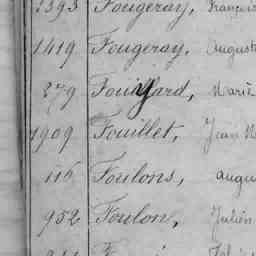 1393 Fougeray, François
1419 Fougeray, August
379 Fouillard, Marie
1909 Fouillet, Jean
116 Foulons, augu
952 Foulon, Julien